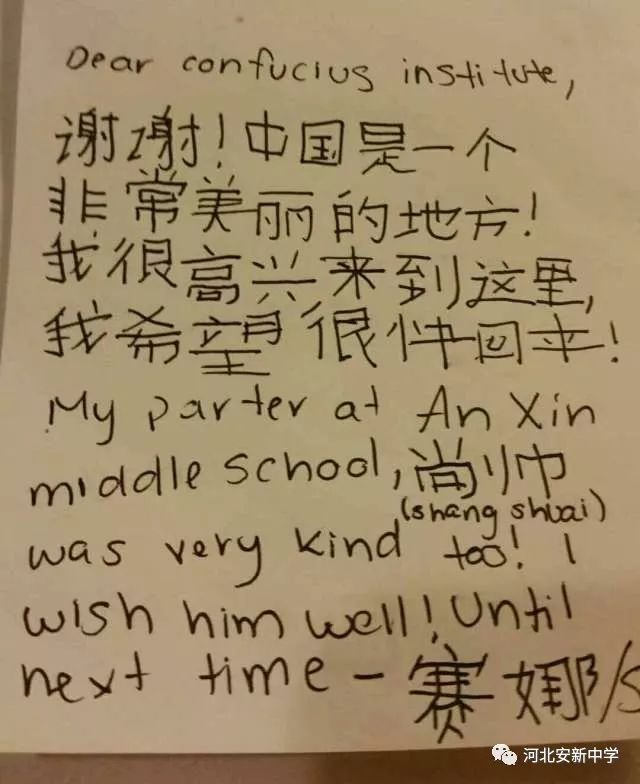 Dear confucius institute,
谢谢!中国是一个
非常美丽的地方!
我很高兴来到这里,
我希望很快回来!
My parter at An Xin
middle school,尚帅
(shang shuai)
was very kind too! I
wish him well! Until
next time - 赛娜/S
河北安新中学